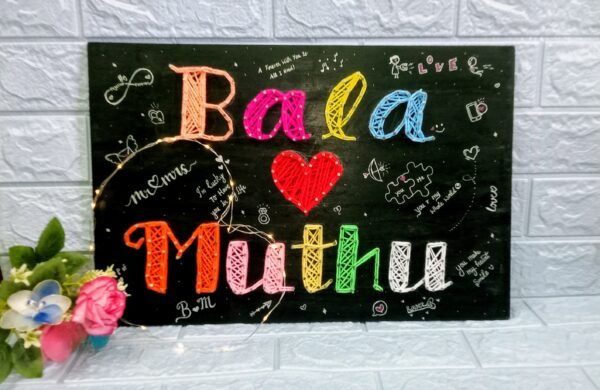 A Forever With You Is
All I Need!
LOVE
Bala
mr ♥ mrs
I'm lucky
To Have
you in
my life
you & my
whole world
Love
Muthu
you make
my heart
smile
B~M